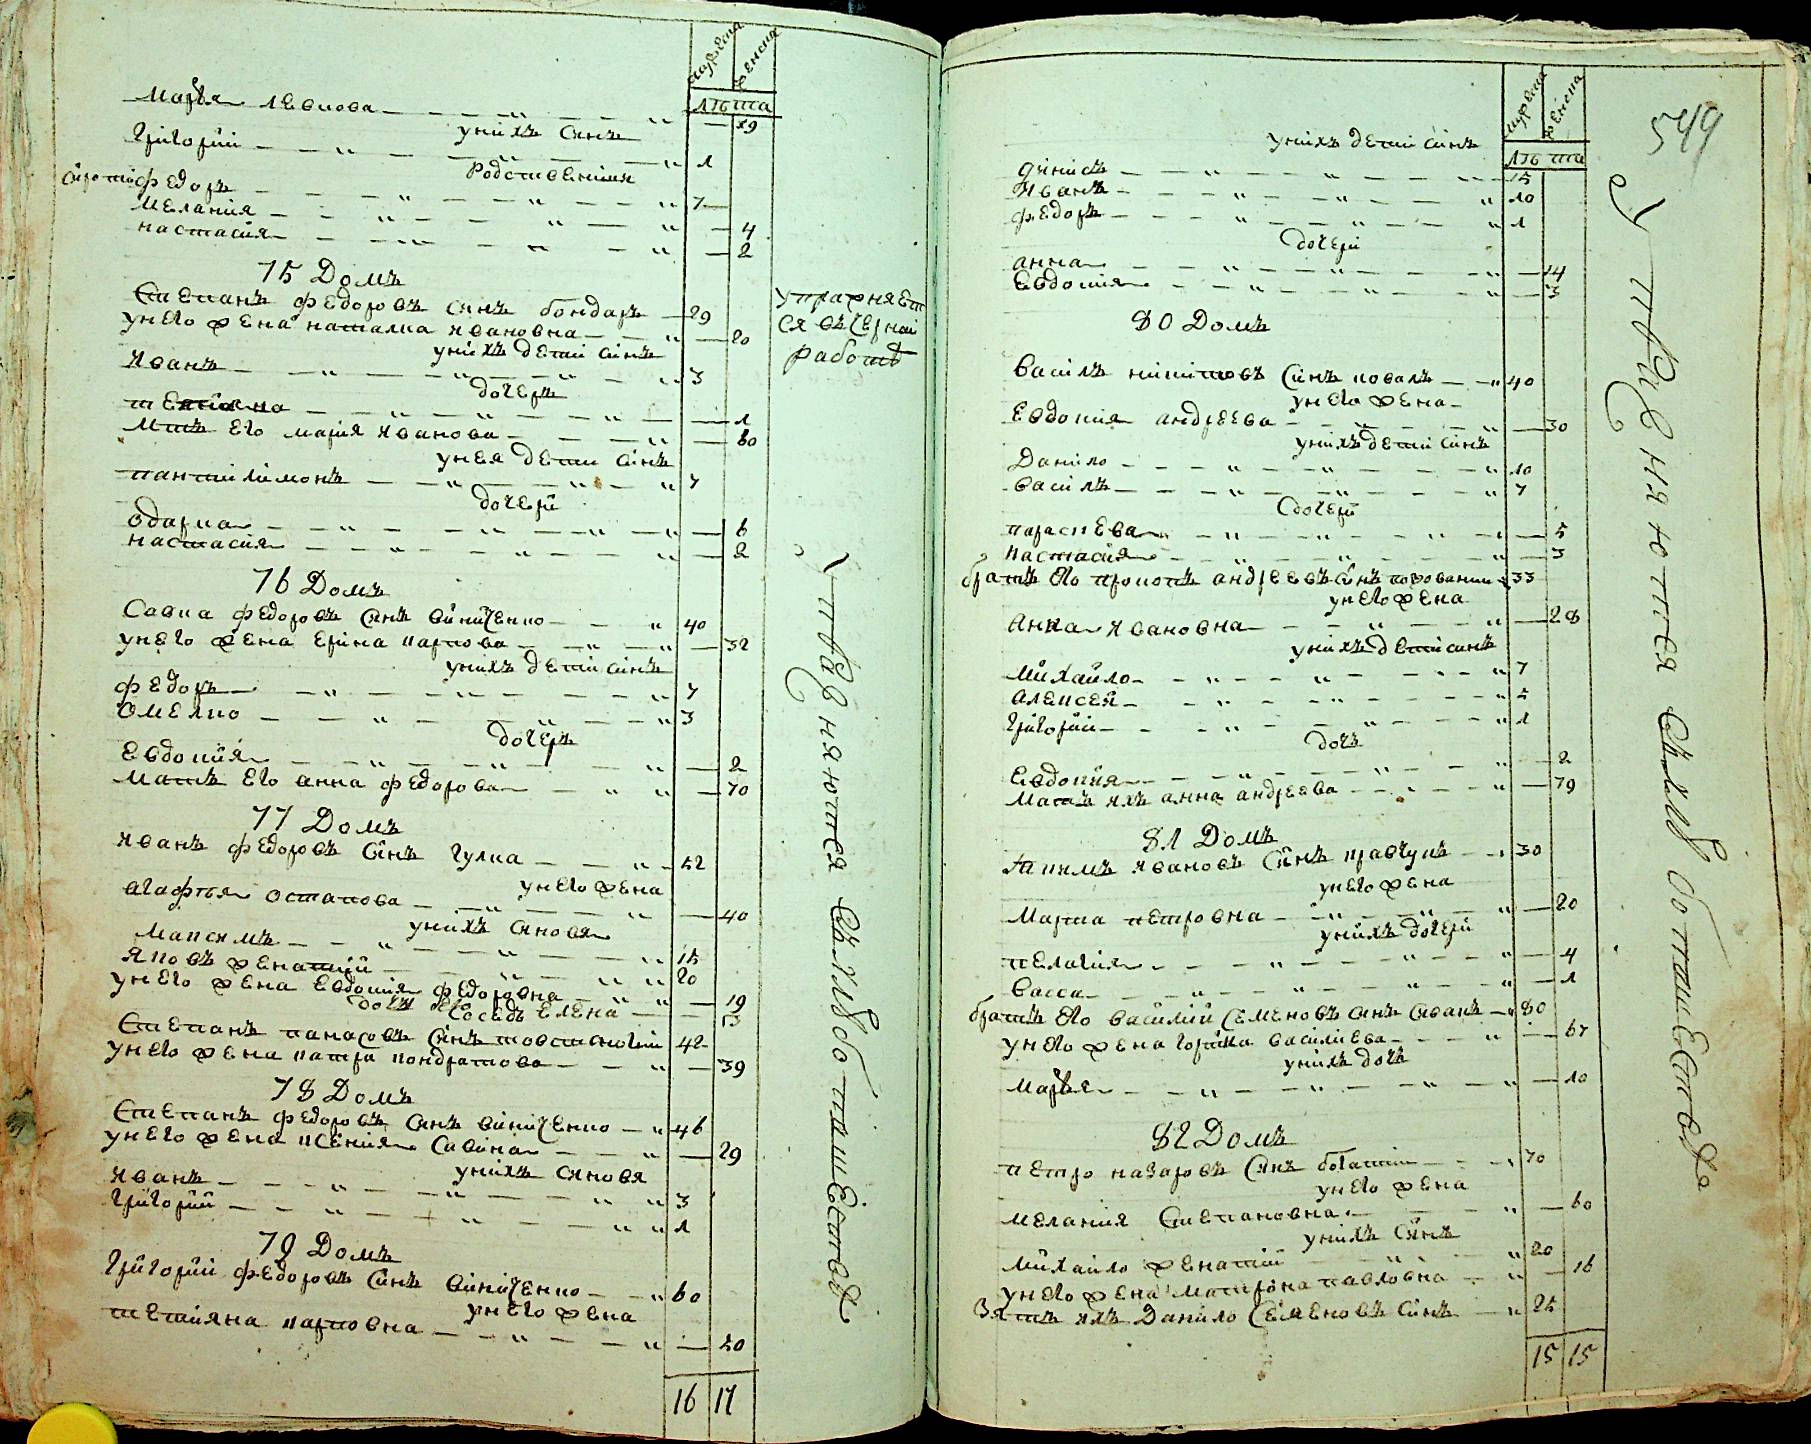 мужеска
женска
лѣта
Марья Левкова 59
у нихъ сынъ
Григорій 1
родственики
сироти Федоръ 7
Мелания 4
Настасия 2
75 Домъ
Степанъ Федоровъ сынъ бондарь 29
у него жена Наталка Ивановна 20
у нихъ дети синъ
Иванъ 3
дочерь
1
Мать его Мария Иванова 60
у нея дети синъ
Пантилимонъ 7
дочери
Одарка 6
Настасия 2
76 Домъ
Савка Федоровъ сынъ Виниченко 40
у него жена Ерина Карпова 32
у нихъ дети синъ
Федоръ 7
Омелко 3
дочерь
Евдокия 2
Мать его Анна Федорова 70
77 Домъ
Иванъ Федоровъ синъ Гулка 52
у него жена
Агафтья Остапова 40
у нихъ синовя
Максимъ 15
Яковъ женатий 20
у него жена Евдокия Федоровна 19
Елена 13
Степанъ Панасовъ синъ товстоногий 42
у него жена Катря Кондратова 39
78 Домъ
Степанъ Федоровъ сынъ Виниченко 46
у него жена Ксения Савина 29
у нихъ синовя
Иванъ 3
Григорий 1
79 Домъ
Григорий Федоровъ синъ Виниченко 60
у него жена
Тетияна Карповна 50
16 17
упражняет
ся въ черной
работѣ
упражняются
549
мужеска
женска
лѣта
у нихъ дети синъ
Динисъ 15
Иванъ 10
Федоръ 1
дочери
Анна 14
Евдокия 3
80 Домъ
Василъ Никитовъ синъ Коваль 40
у него жена
Евдокия Андреева 30
у нихъ дети синъ
Данило 10
Василъ 7
дочери
Параскева 5
Настасия 3
братъ его Прокопъ Андреевъ синъ 33
у него жена
Анна Ивановна 28
у нихъ дети синъ
Михайло 7
Алексей 5
Григорий 1
дочь
Евдокия 2
Мать ихъ Анна Андреева 79
81 Домъ
Якимъ Ивановъ синъ Кравчукъ 30
у него жена
Марта Петровна 20
у нихъ дочери
Пелагия 4
Васса 1
братъ его Василий Семеновъ синъ 80
у него жена Василиева 67
у нихъ дочь
Марья 10
82 Домъ
Петро Назаровъ синъ богатий 70
у него жена
Мелания Степановна 60
у нихъ синъ
Михайло женатий 20
у него жена Матрона Павловна 16
Зять ихъ Данило Семеновъ синъ 25
15 15
упражняются